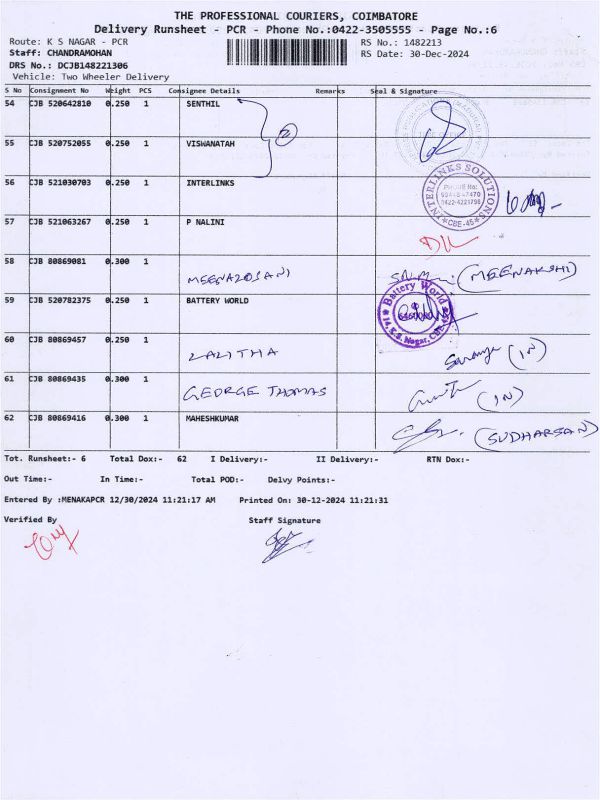 THE PROFESSIONAL COURIERS, COIMBATORE
Delivery Runsheet - PCR - Phone No.:0422-3505555 - Page No.:6
Route: K S NAGAR - PCR RS No.: 1482213
Staff: CHANDRAMOHAN RS Date: 30-Dec-2024
DRS No.: DCJB148221306
Vehicle: Two Wheeler Delivery
S No Consignment No Weight PCS Consignee Details Remarks Seal & Signature
54 CJB 520642810 0.250 1 SENTHIL
2
55 CJB 520752055 0.250 1 VISWANATAH
56 CJB 521030703 0.250 1 INTERLINKS
INTERLINKS SOLUTIONS
PHONE No:
0422-4221798
CBE-45
57 CJB 521063267 0.250 1 P NALINI
58 CJB 80869081 0.300 1 (MEENAKSHI)
59 CJB 520782375 0.250 1 BATTERY WORLD
Battery World
60 CJB 80869457 0.250 1 LALITHA Saranya (IN)
61 CJB 80869435 0.300 1 GEORGE THOMAS (IN)
62 CJB 80869416 0.300 1 MAHESHKUMAR (SUDHARSAN)
Tot. Runsheet:- 6 Total Dox:- 62 I Delivery:- II Delivery:- RTN Dox:-
Out Time:- In Time:- Total POD:- Delvy Points:-
Entered By :MENAKAPCR 12/30/2024 11:21:17 AM Printed On: 30-12-2024 11:21:31
Verified By Staff Signature